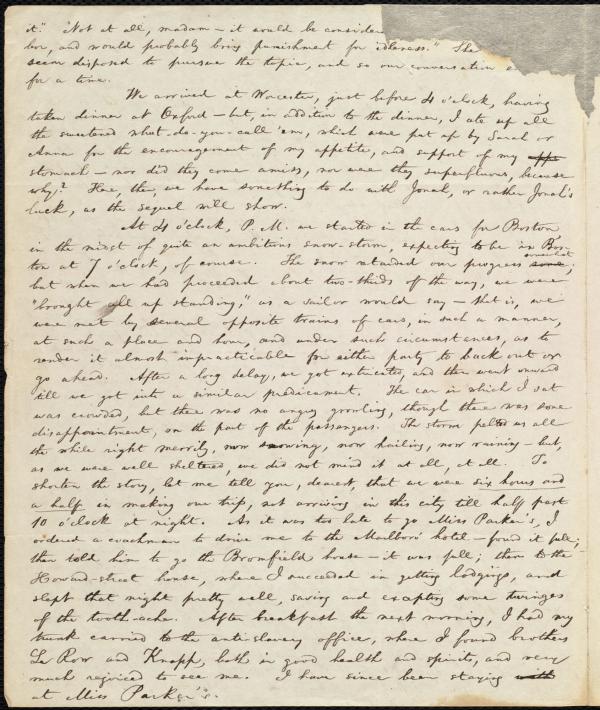 it." Not at all, madam — it would be consider
bor, and would probably bring punishment for idleness." She
seem disposed to pursue the topic, and so our conversation e
for a time.
We arrived at Worcester, just before 4 o'clock, having
taken dinner at Oxford — but, in addition to the dinner, I ate up all
the sweetened what-do-you-call 'em, which were put up by Sarah or
Anna for the encouragement of my appetite, and support of my
stomach — nor did they come amiss, nor were they superfluous, because
why? Here, then, we have something to do with Jonah, or rather Jonah's
luck, as the sequel will show.
At 4 o'clock, P. M. we started in the cars for Boston,
in the midst of quite an ambitious snow-storm, expecting to be in Bos-
ton at 7 o'clock, of course. The snow retarded our progress somewhat;
but when we had proceeded about two-thirds of the way, we were
"brought all up standing," as a sailor would say — that is, we
were met by several opposite trains of cars, in such a manner,
at such a place and hour, and under such circumstances, as to
render it almost impracticable for either party to back out or
go ahead. After a long delay, we got extricated, and then went onward
till we got into a similar predicament. The car in which I sat
was crowded, but there was no angry growling, though there was some
disappointment, on the part of the passengers. The storm pelted us all
the while right merrily, now snowing, now hailing, now raining — but,
as we were well sheltered, we did not mind it at all, at all. To
shorten the story, let me tell you, dearest, that we were six hours and
a half in making our trip, not arriving in this city till half past
10 o'clock at night. As it was too late to go Miss Parker's, I
ordered a coachman to drive me to the Marlboro' hotel — found it full;
then told him to go the Bromfield house — it was full; then to the
Howard-street house, where I succeeded in getting lodgings, and
slept that night pretty well, saving and excepting some twinges
of the tooth-ache. After breakfast the next morning, I had my
trunk carried to the anti-slavery office, where I found brothers
La Row and Knapp, both in good health and spirits, and very
much rejoiced to see me. I have since been staying with
at Miss Parker's.